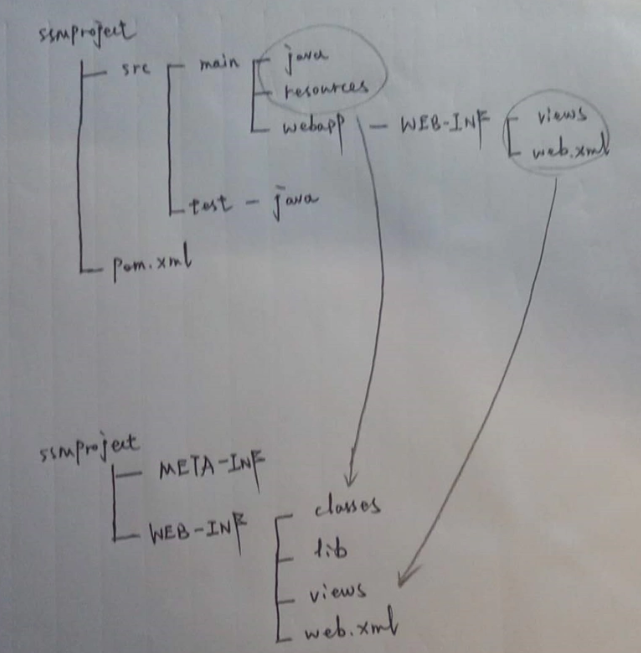 ssmproject
src main java
resources
webapp — WEB-INF views
web.xml
test — java
pom.xml
ssmproject
META-INF
WEB-INF classes
lib
views
web.xml